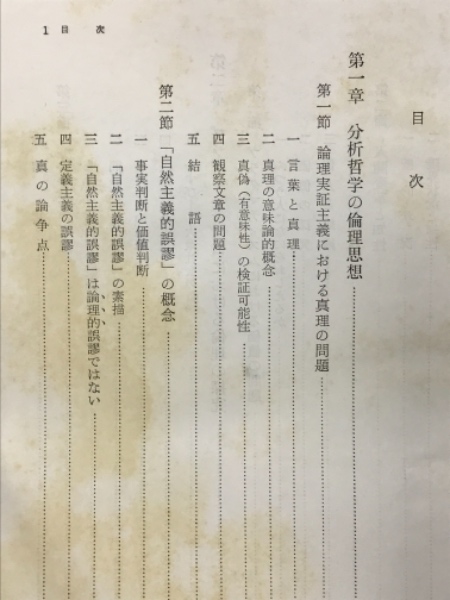 1 目 次
目 次
第一章 分析哲学の倫理思想
第一節 論理実証主義における真理の問題
一 言葉と真理
二 真理の意味論的概念
三 真偽(有意味性)の検証可能性
四 観察文章の問題
五 結 語
第二節 「自然主義的誤謬」の概念
一 事実判断と価値判断
二 「自然主義的誤謬」の素描
三 「自然主義的誤謬」は論理的誤謬ではない
四 定義主義の誤謬
五 真の論争点